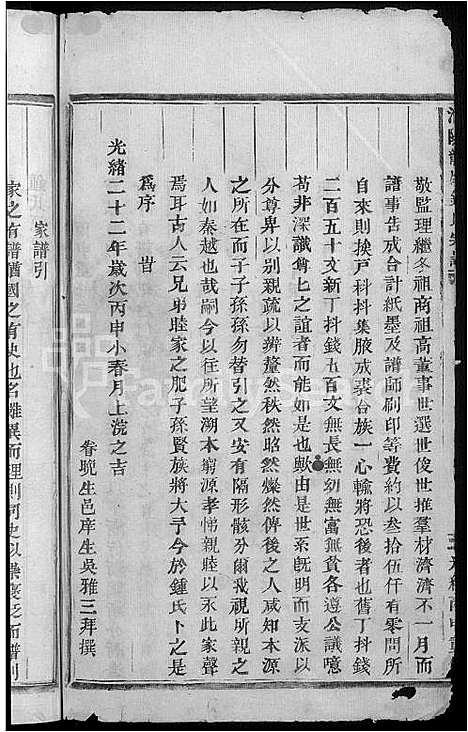 敬監理繼冬祖商祖高董事世選世俊世推羣材濟濟不一月而
譜事告成合計紙墨及譜師刷印等費約以叁拾伍仟有零問所
自來則挨戶科抖集腋成裘合族一心輸將恐後者也舊丁抖錢
二百五十文新丁抖錢五百文無長無幼無富無貧各遵公議噫
苟非深識尊匕之誼者而能如是也歟由是世系旣明而支派以
分尊卑以別親疏以辨釐然秩然昭然燦然俾後之人奉而守
之所在而子子孫孫勿替引之又安有隔形骸分爾我視所親之
人如秦越也哉嗣今以往所望溯本窮源孝悌親睦以永此家聲
焉耳古人云兄弟睦家之肥子孫賢族將大予今於鍾氏卜之是
爲序 旹
光緒二十二年歲次丙申小春月上浣之吉
眷晩生邑庠生吳雅三拜撰
家譜引
家之有譜猶國之有史也名雖異而理則同史以崇褒貶而譜別